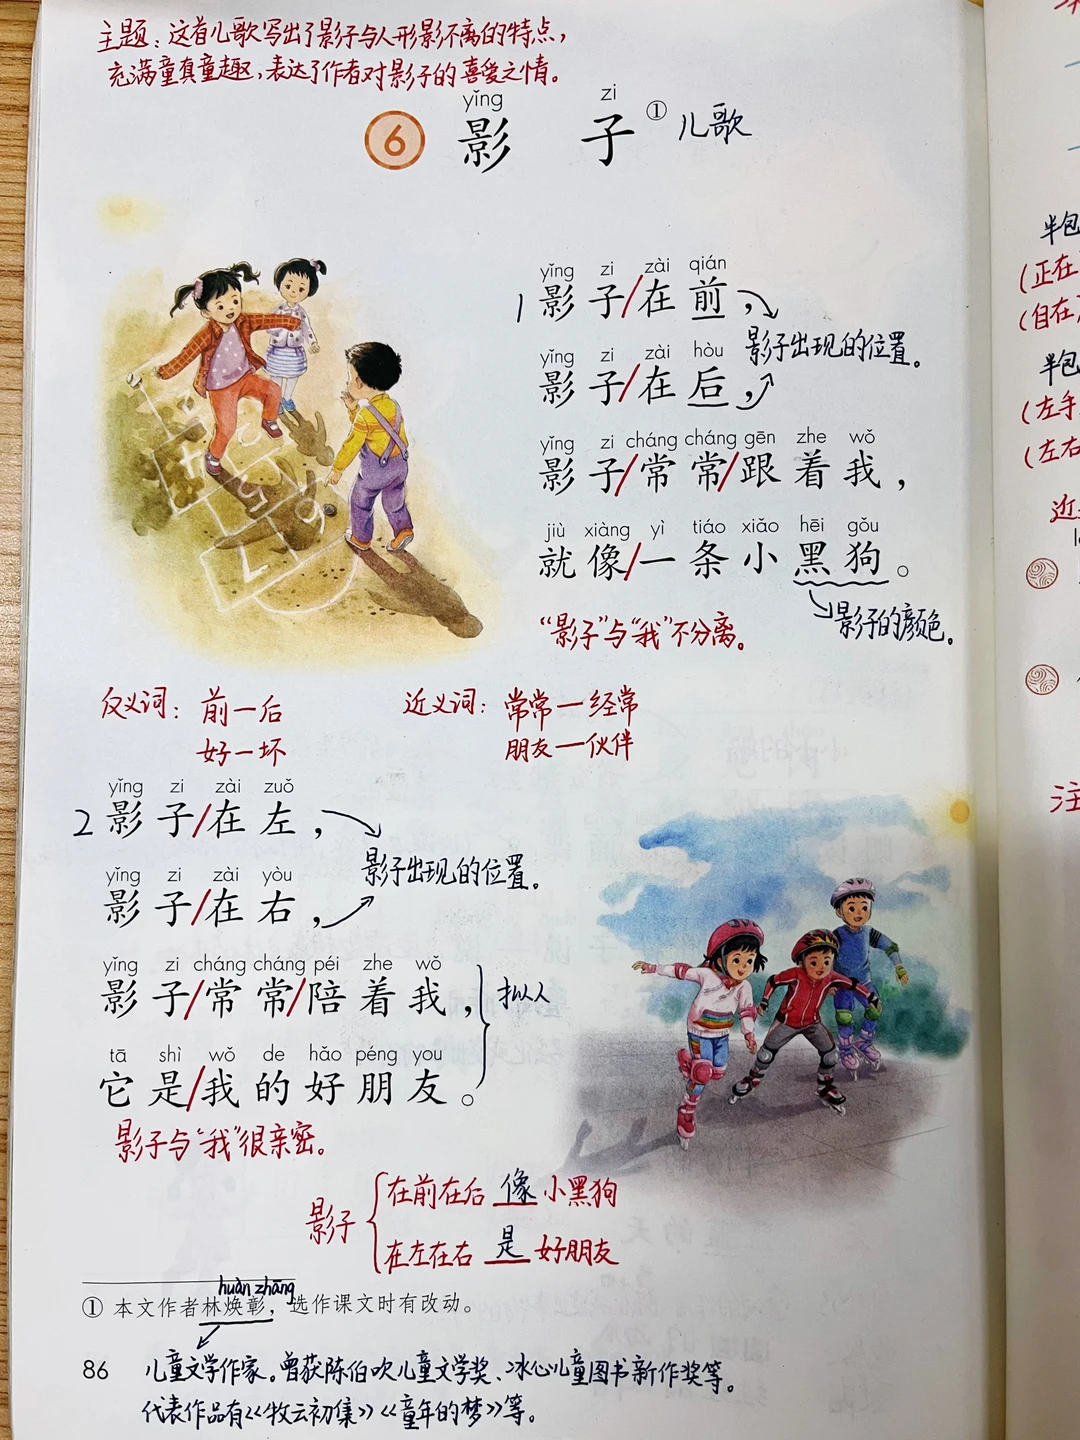 主题：这首儿歌写出了影子与人形影不离的特点，
充满童真童趣，表达了作者对影子的喜爱之情。
yǐng zi
6 影 子 ① 儿歌
yǐng zi zài qián
1 影子/在前，
影子出现的位置。
yǐng zi zài hòu
影子/在后，
yǐng zi cháng cháng gēn zhe wǒ
影子/常常/跟着我，
jiù xiàng yì tiáo xiǎo hēi gǒu
就像/一条小黑狗。
影子的颜色。
“影子”与“我”不分离。
反义词：前一后
好一坏
近义词：常常一经常
朋友一伙伴
yǐng zi zài zuǒ
2 影子/在左，
影子出现的位置。
yǐng zi zài yòu
影子/在右，
yǐng zi cháng cháng péi zhe wǒ
影子/常常/陪着我，
拟人
tā shì wǒ de hǎo péng you
它是/我的好朋友。
影子与“我”很亲密。
影子
在前在后 像 小黑狗
在左在右 是 好朋友
huàn zhāng
① 本文作者林焕彰，选作课文时有改动。
86
儿童文学作家。曾获陈伯吹儿童文学奖、冰心儿童图书新作奖等。
代表作品有《牧云初集》《童年的梦》等。
半包
(正在
(自在
半包
(左手
(左右
近
注